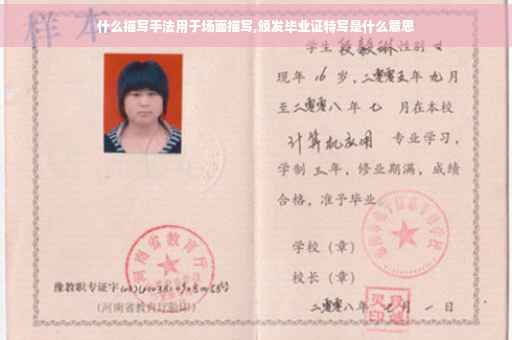 什么描写手法用于场面描写,颁发毕业证特写是什么意思
样本
学生 段毅琳 性别 女
现年 16 岁,二零零五年 九月
至二零零八年 七 月在本校
计算机应用 专业学习,
学制 三 年,修业期满,成绩
合格,准予毕业
学校(章)
校长(章)
二零零八年 七 月 一 日
河南省教育厅
豫教职专证字
(河南省教育厅验印)